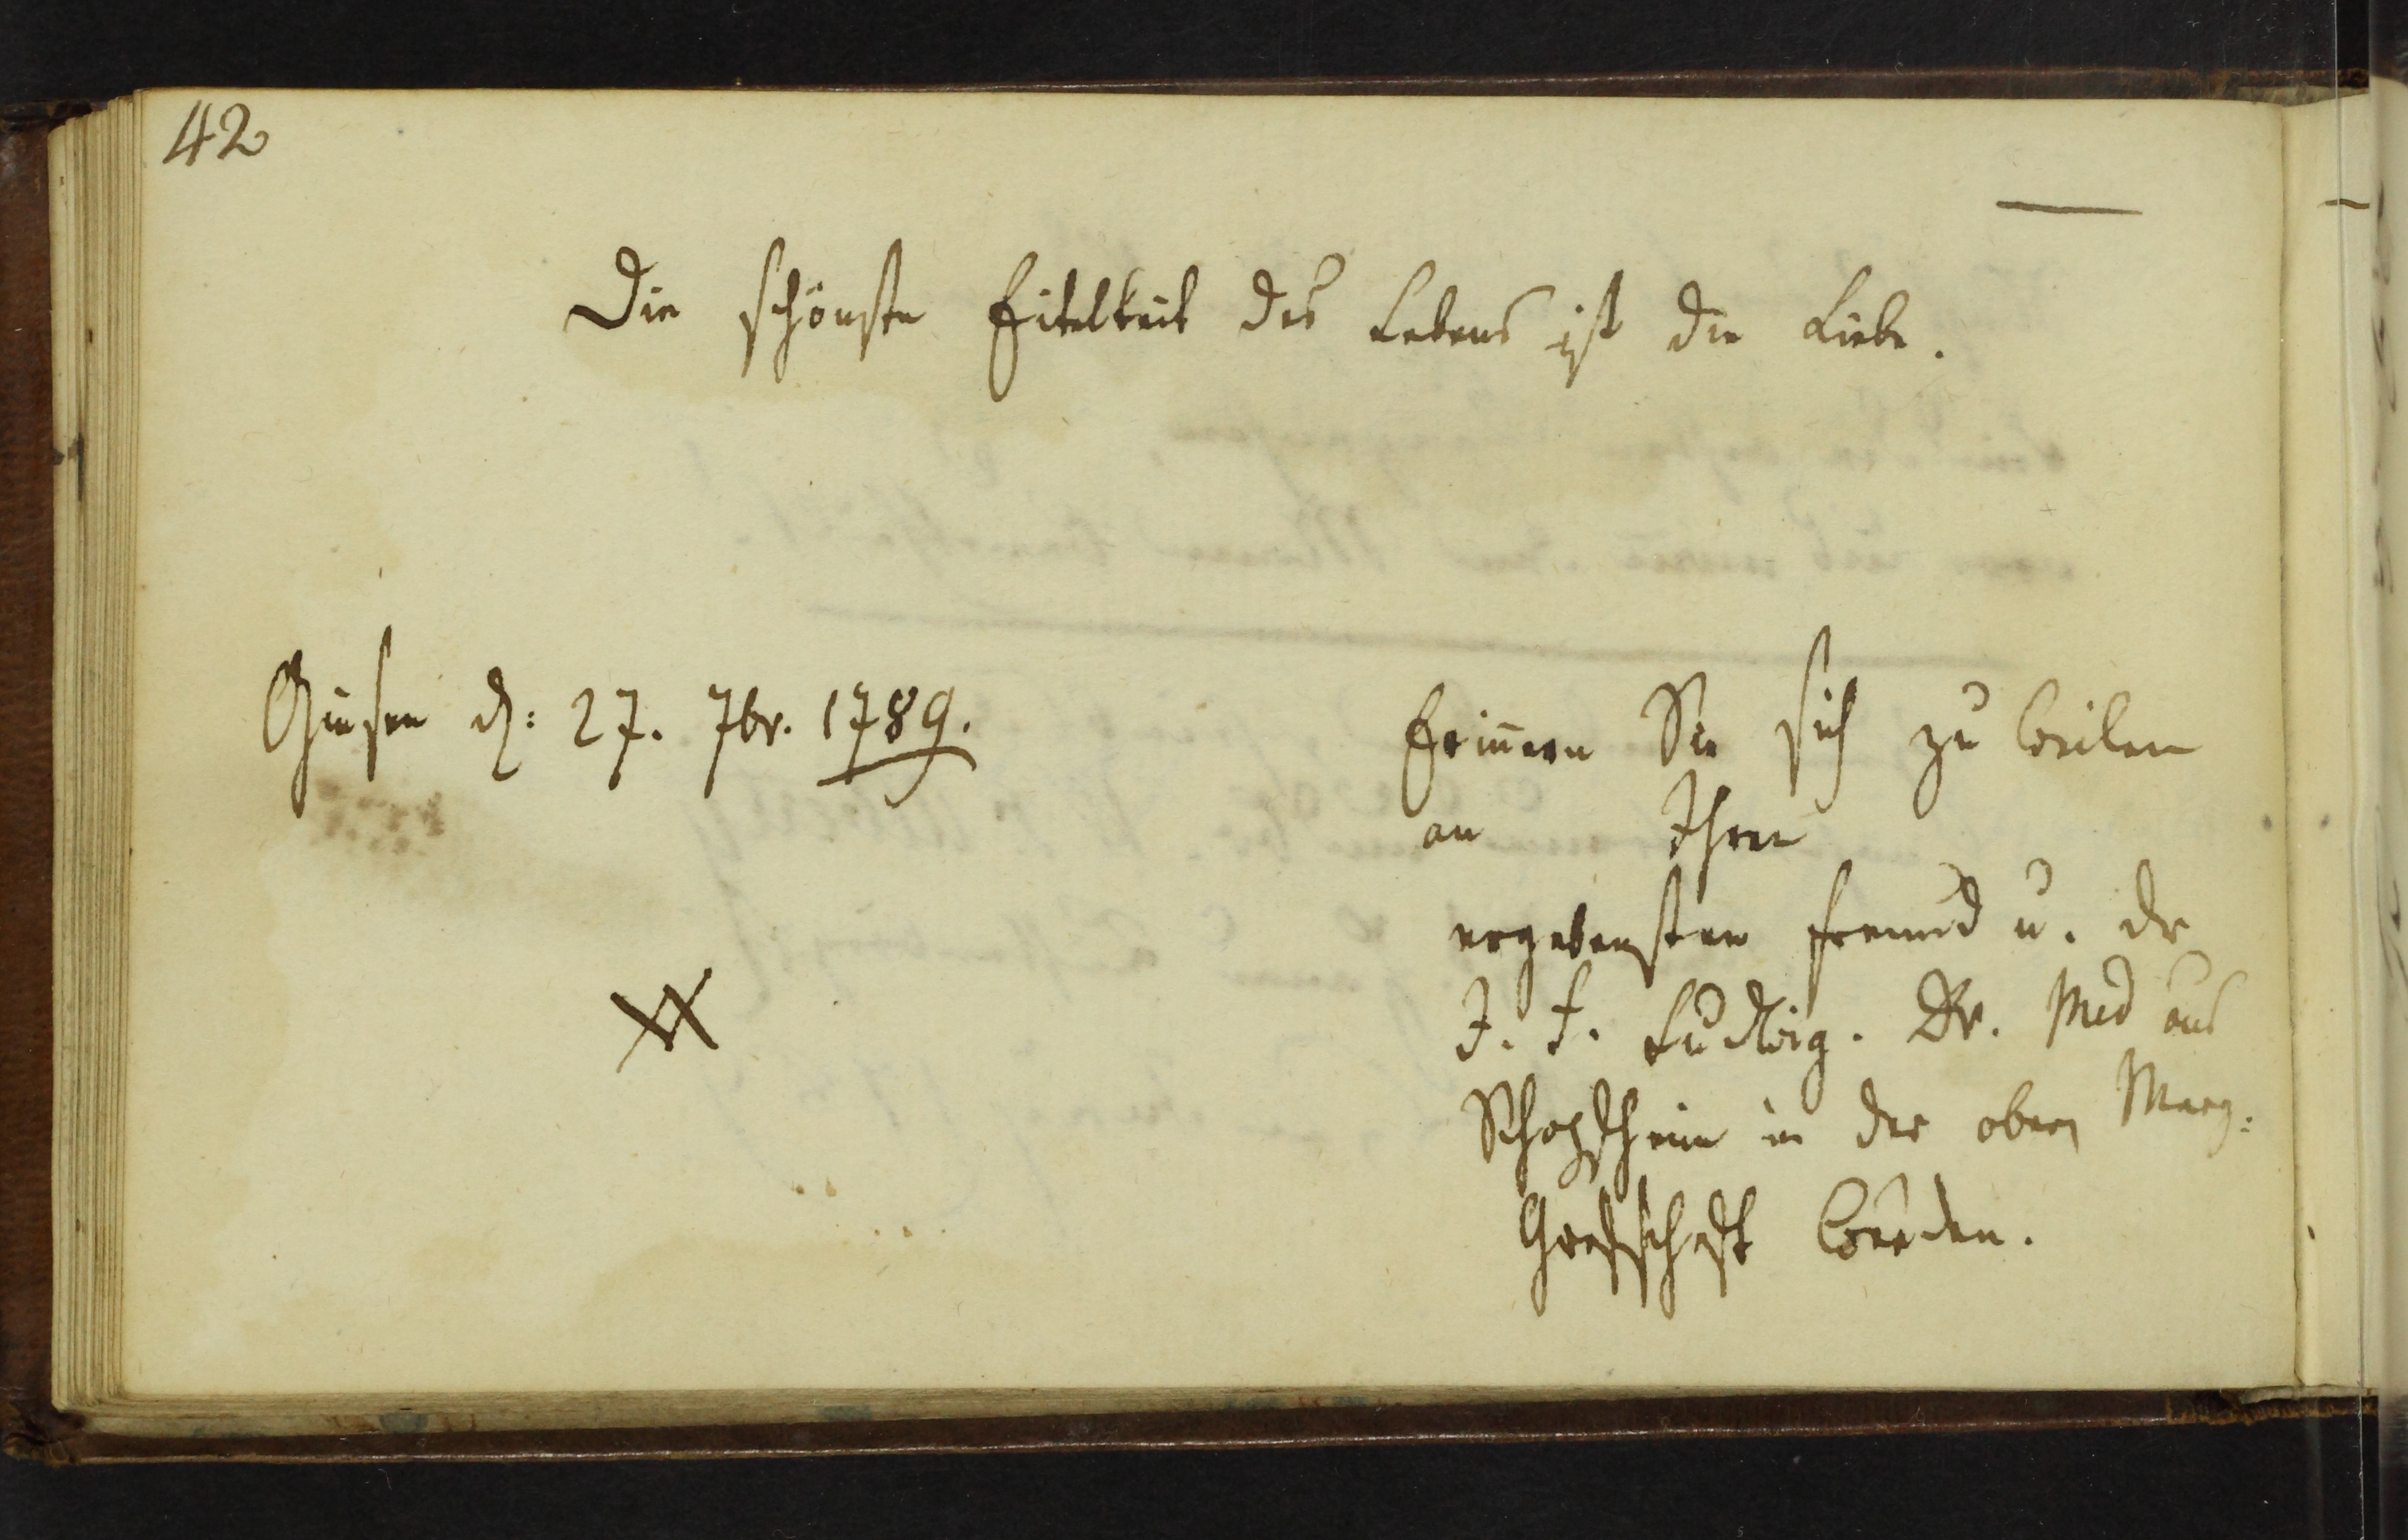 42
Die schönste Eitelkeit des Lebens ist die Liebe.
Giesen d: 27. 7br. 1789.
Erinnern Sie sich zu weilen
an Ihren
ergebensten Freund u. Dr
J. F. Ludwig. Dr. Med aus
Schopfheim in der obern Marg:
Grafschaft Baaden.